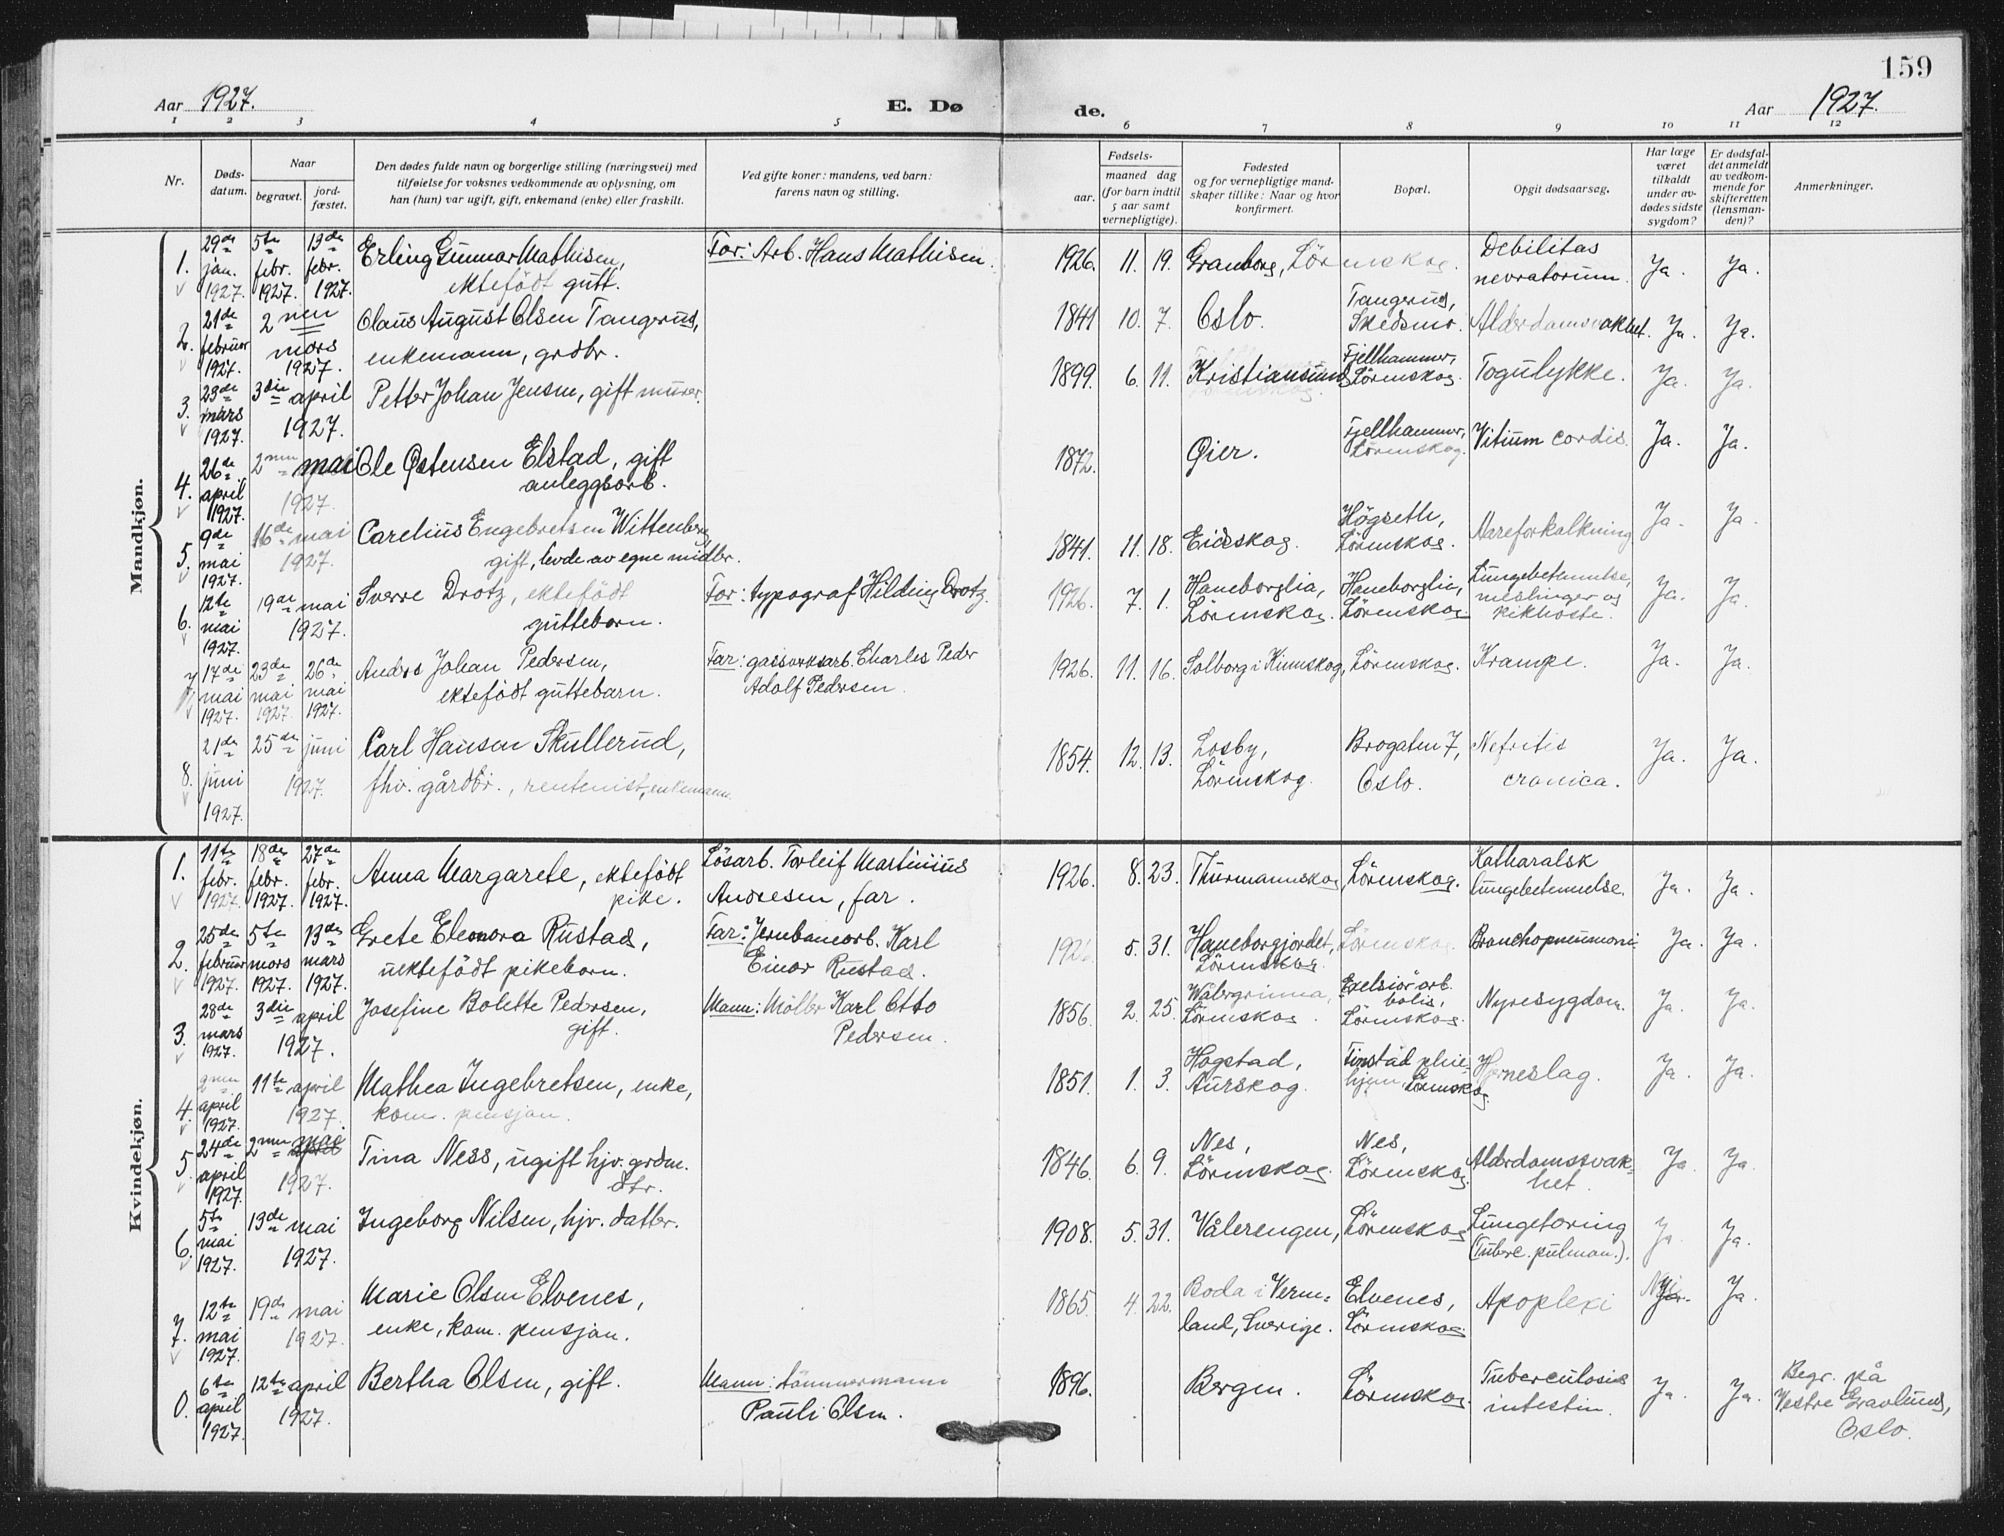 159
Aar 1927.
E. Dø
de.
Aar 1927.
1 2 3 4 5 6 7 8 9 10 11 12
Nr.
Døds-
datum.
Naar
begravet.
jord-
fæstet.
Den dødes fulde navn og borgerlige stilling (næringsvei) med
tilføielse for voksnes vedkommende av oplysning, om
han (hun) var ugift, gift, enkemand (enke) eller fraskilt.
Ved gifte koner: mandens, ved barn:
farens navn og stilling.
Fødsels-
aar.
maaned dag
(for barn indtil
5 aar samt
vernepligtige).
Fødested
og for vernepligtige mand-
skaper tillike: Naar og hvor
konfirmert.
Bopæl.
Opgit dødsaarsag.
Har læge
været
tilkaldt
under av-
dødes sidste
sygdom?
Er dødsfal-
det anmeldt
av vedkom-
mende for
skifteretten
(lensman-
den)?
Anmerkninger.
Mandkjøn.
1.
29de
jan.
1927.
5te
febr.
1927.
13de
febr.
1927.
Erling Gunnar Mathisen,
ektefödt gutt.
Far: Arb. Hans Mathisen.
1926. 11. 19. Granborg, Lörenskog.
Debilitas
nevratorium.
Ja. Ja.
2.
21de
februar
1927.
2nen
mars
1927.
Claus August Olsen Tangerud,
enkemann, grdbr.
1841 10. 7. Oslo.
Tangerud,
Skedsmo.
Alderdomsvakhet. Ja. Ja.
3.
23de
mars
1927.
3die april
1927.
Petter Johan Jensen, gift murer.
1899. 6. 11. Kristiansund
Fjellhammer,
Lörenskog.
Togulykke. Ja. Ja.
4.
26de
april
1927.
2nen mai
1927.
Ole Østensen Elstad, gift
anleggsarb.
1872. Øier.
Fjellhammer,
Lörenskog.
Vitium cordis. Ja. Ja.
5.
9de
mai
1927.
16de mai
1927.
Carelius Engebretsen Wittenberg
gift, levde av egne midler.
1841. 11. 18. Eidskog.
Högseth,
Lörenskog.
Aareforkalkning Ja. Ja.
6.
12te
mai
1927.
19de mai
1927.
Sverre Drotz, ektefödt
guttebarn.
Far: typograf Hilding Drotz.
1926. 7. 1.
Haneborglia,
Lörenskog.
Haneborglia,
Lörenskog
Lungebetennelse,
meslinger og
kikhoste.
Ja. Ja.
7.
17de
mai
1927.
23de
mai
1927.
26de
mai
1927.
Andrs Johan Pedersen,
ektefödt guttebarn.
Far: gassverksarb. Charles Peder
Adolf Pedersen.
1926. 11. 16. Solborg i Kinnskog, Lörenskog. Krampe. Ja. Ja.
8.
21de
juni
1927.
25de juni
1927.
Carl Hansen Skullerud,
fhv. gårdbr., rentenist, enkemann.
1854. 12. 13.
Losby,
Lörenskog.
Brogaten 7,
Oslo.
Nefritis
cronica.
Ja. Ja.
Kvindekjøn.
1.
11te
febr.
1927.
18de
febr.
1927.
27de
febr.
1927.
Anna Margarete, ektefödt
pike.
Lösarb. Torleif Martinius
Andresen, far.
1926. 8. 23. Thurmannskog, Lörenskog.
Katharalsk
lungebetennelse.
Ja. Ja.
2.
25de
februar
1927.
5te
mars
1927.
13de
mars
1927.
Grete Eleonora Rustad,
uektefödt pikebarn.
Far: Jernbanearb. Karl
Einar Rustad.
1926 5. 31.
Haneborgjordet,
Lörenskog.
Lörenskog.
Bronchopneumoni Ja. Ja.
3.
28de
mars
1927.
3die april
1927.
Josefine Bolette Pedersen,
gift.
Mann: Möller Karl Otto
Pedersen.
1856. 2. 25.
Wålergrinna,
Lörenskog.
Excelsior arb.
bolig,
Lörenskog.
Nyresygdom. Ja. Ja.
4.
2nen
april
1927.
11te april
1927.
Mathea Ingebretsen, enke,
kom. pensjon.
1851. 1. 3.
Hogstad,
Aurskog.
Finstad pleie-
hjem, Lörenskog.
Hjerneslag. Ja. Ja.
5.
24de
april
1927.
2nen mai
1927.
Tina Ness, ugift hjv. grdm.
dtr.
1846. 6. 9.
Nes,
Lörenskog.
Nes,
Lörenskog.
Alderdomssvak-
het
Ja. Ja.
6.
5te
mai
1927.
13de mai
1927.
Ingeborg Nilsen, hjv. datter.
1908. 5. 31. Vålerengen, Lörenskog
Lungetæring
(Tuberc. pulmon.).
Ja. Ja.
7.
12te
mai
1927.
19de mai
1927.
Marie Olsen Elvenes,
enke, kom. pensjon.
1865. 4. 22.
Boda i Verm-
land, Sverige.
Elvenes,
Lörenskog.
Apoplexi
Ja.
0.
6te
april
1927.
12te april
1927.
Bertha Olsen, gift.
Mann: tömmermann
Pauli Olsen.
1896. Bergen. Lörenskog.
Tuberculosis
intestin.
Ja. Ja.
Begr. på
Vestre Gravlund,
Oslo.